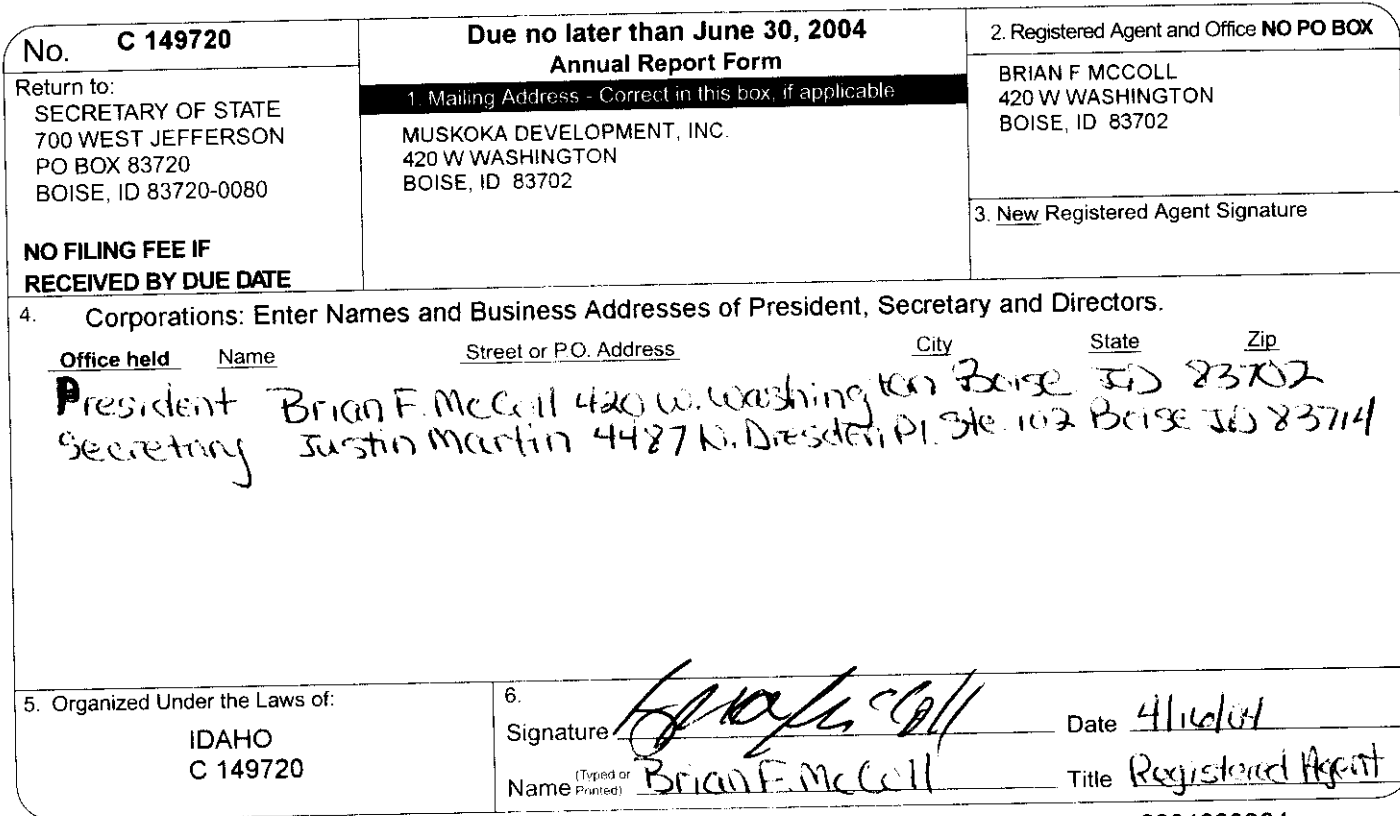 No. C 149720
Return to:
SECRETARY OF STATE
700 WEST JEFFERSON
PO BOX 83720
BOISE, ID 83720-0080
NO FILING FEE IF
RECEIVED BY DUE DATE
Due no later than June 30, 2004
Annual Report Form
1. Mailing Address - Correct in this box, if applicable
MUSKOKA DEVELOPMENT, INC.
420 W WASHINGTON
BOISE, ID 83702
2. Registered Agent and Office NO PO BOX
BRIAN F MCCOLL
420 W WASHINGTON
BOISE, ID 83702
3. New Registered Agent Signature
4. Corporations: Enter Names and Business Addresses of President, Secretary and Directors.
Office held Name Street or P.O. Address City State Zip
President Brian F. McColl 420 W. Washington Boise ID 83702
Secretary Justin Martin 4487 N. Dresden Pl. Ste. 102 Boise ID 83714
5. Organized Under the Laws of:
IDAHO
C 149720
6.
Signature Brian F McColl Date 4/16/04
Name (Typed or Printed) Brian F. McColl Title Registered Agent